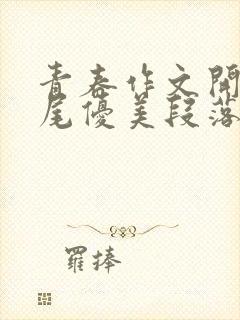 青春作文開
尾優美段落
羅捧